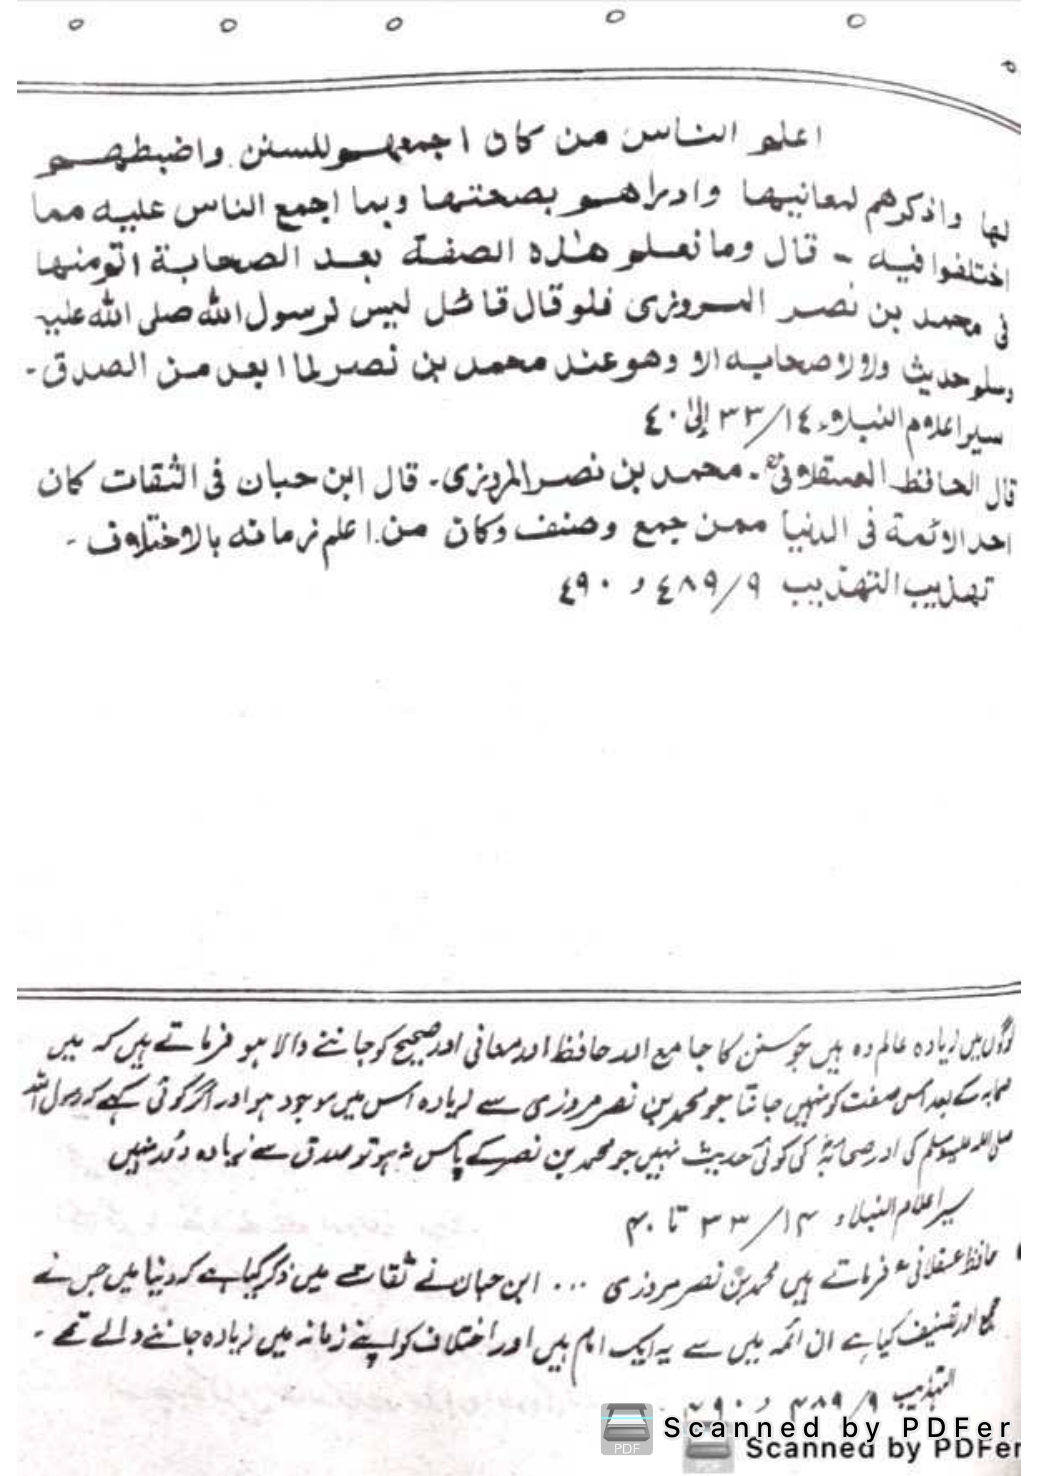 اعلم الناس من كان اجمعهم للسنن واضبطهم
لها واذكرهم لمعانيها وادراهم بصحتها وبما اجمع الناس عليه مما
اختلفوا فيه - قال وما نعلم هذه الصفة بعد الصحابة اتم منها
فى محمد بن نصر المروزى فلو قال قائل ليس لرسول الله صلى الله عليه
وسلم حديث ولا لاصحابه الا وهو عند محمد بن نصر لما ابعد من الصدق -
سير اعلام النبلاء ١٤/ ٣٣ إلى ٤٠
قال الحافظ العسقلانىؒ - محمد بن نصر المروزى - قال ابن حبان فى الثقات كان
احد الائمة فى الدنيا ممن جمع وصنف وكان من اعلم زمانه بالاختلاف -
تهذيب التهذيب ٩/ ٤٨٩ و ٤٩٠
لوگوں میں زیادہ عالم وہ ہیں جو سنن کا جامع اور حافظ اور معانی اور صحیح کو جاننے والا ہو فرماتے ہیں کہ میں
صحابہ کے بعد اس صفت کو نہیں جانتا جو محمد بن نصر مروزی سے زیادہ اس میں موجود ہو اور اگر کوئی کہے کہ رسول اللہ
صلی اللہ علیہ وسلم کی اور صحابہؓ کی کوئی حدیث نہیں جو محمد بن نصر کے پاس نہ ہو تو صدق سے زیادہ دُور نہیں
سیر اعلام النبلاء ۱۴/ ۳۳ تا ۴۰
حافظ عسقلانیؒ فرماتے ہیں محمد بن نصر مروزی ... ابن حبان نے ثقات میں ذکر کیا ہے کہ دنیا میں جس نے
جمع اور تصنیف کیا ہے ان ائمہ میں سے یہ ایک امام ہیں اور اختلاف کو اپنے زمانہ میں زیادہ جاننے والے تھے -
التہذیب ۹/ ۴۸۹ و ۴۹۰
Scanned by PDFer
Scanned by PDFer